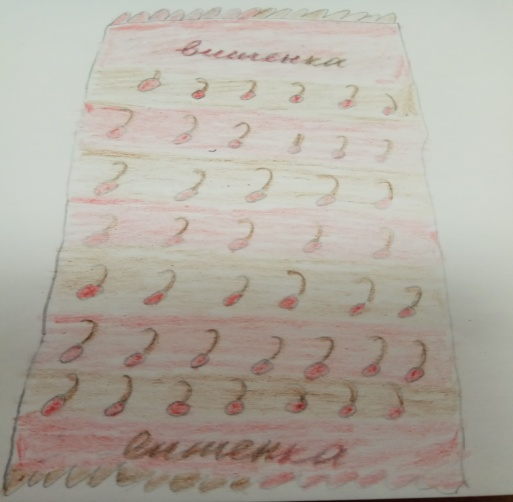 вишенка
вишенка